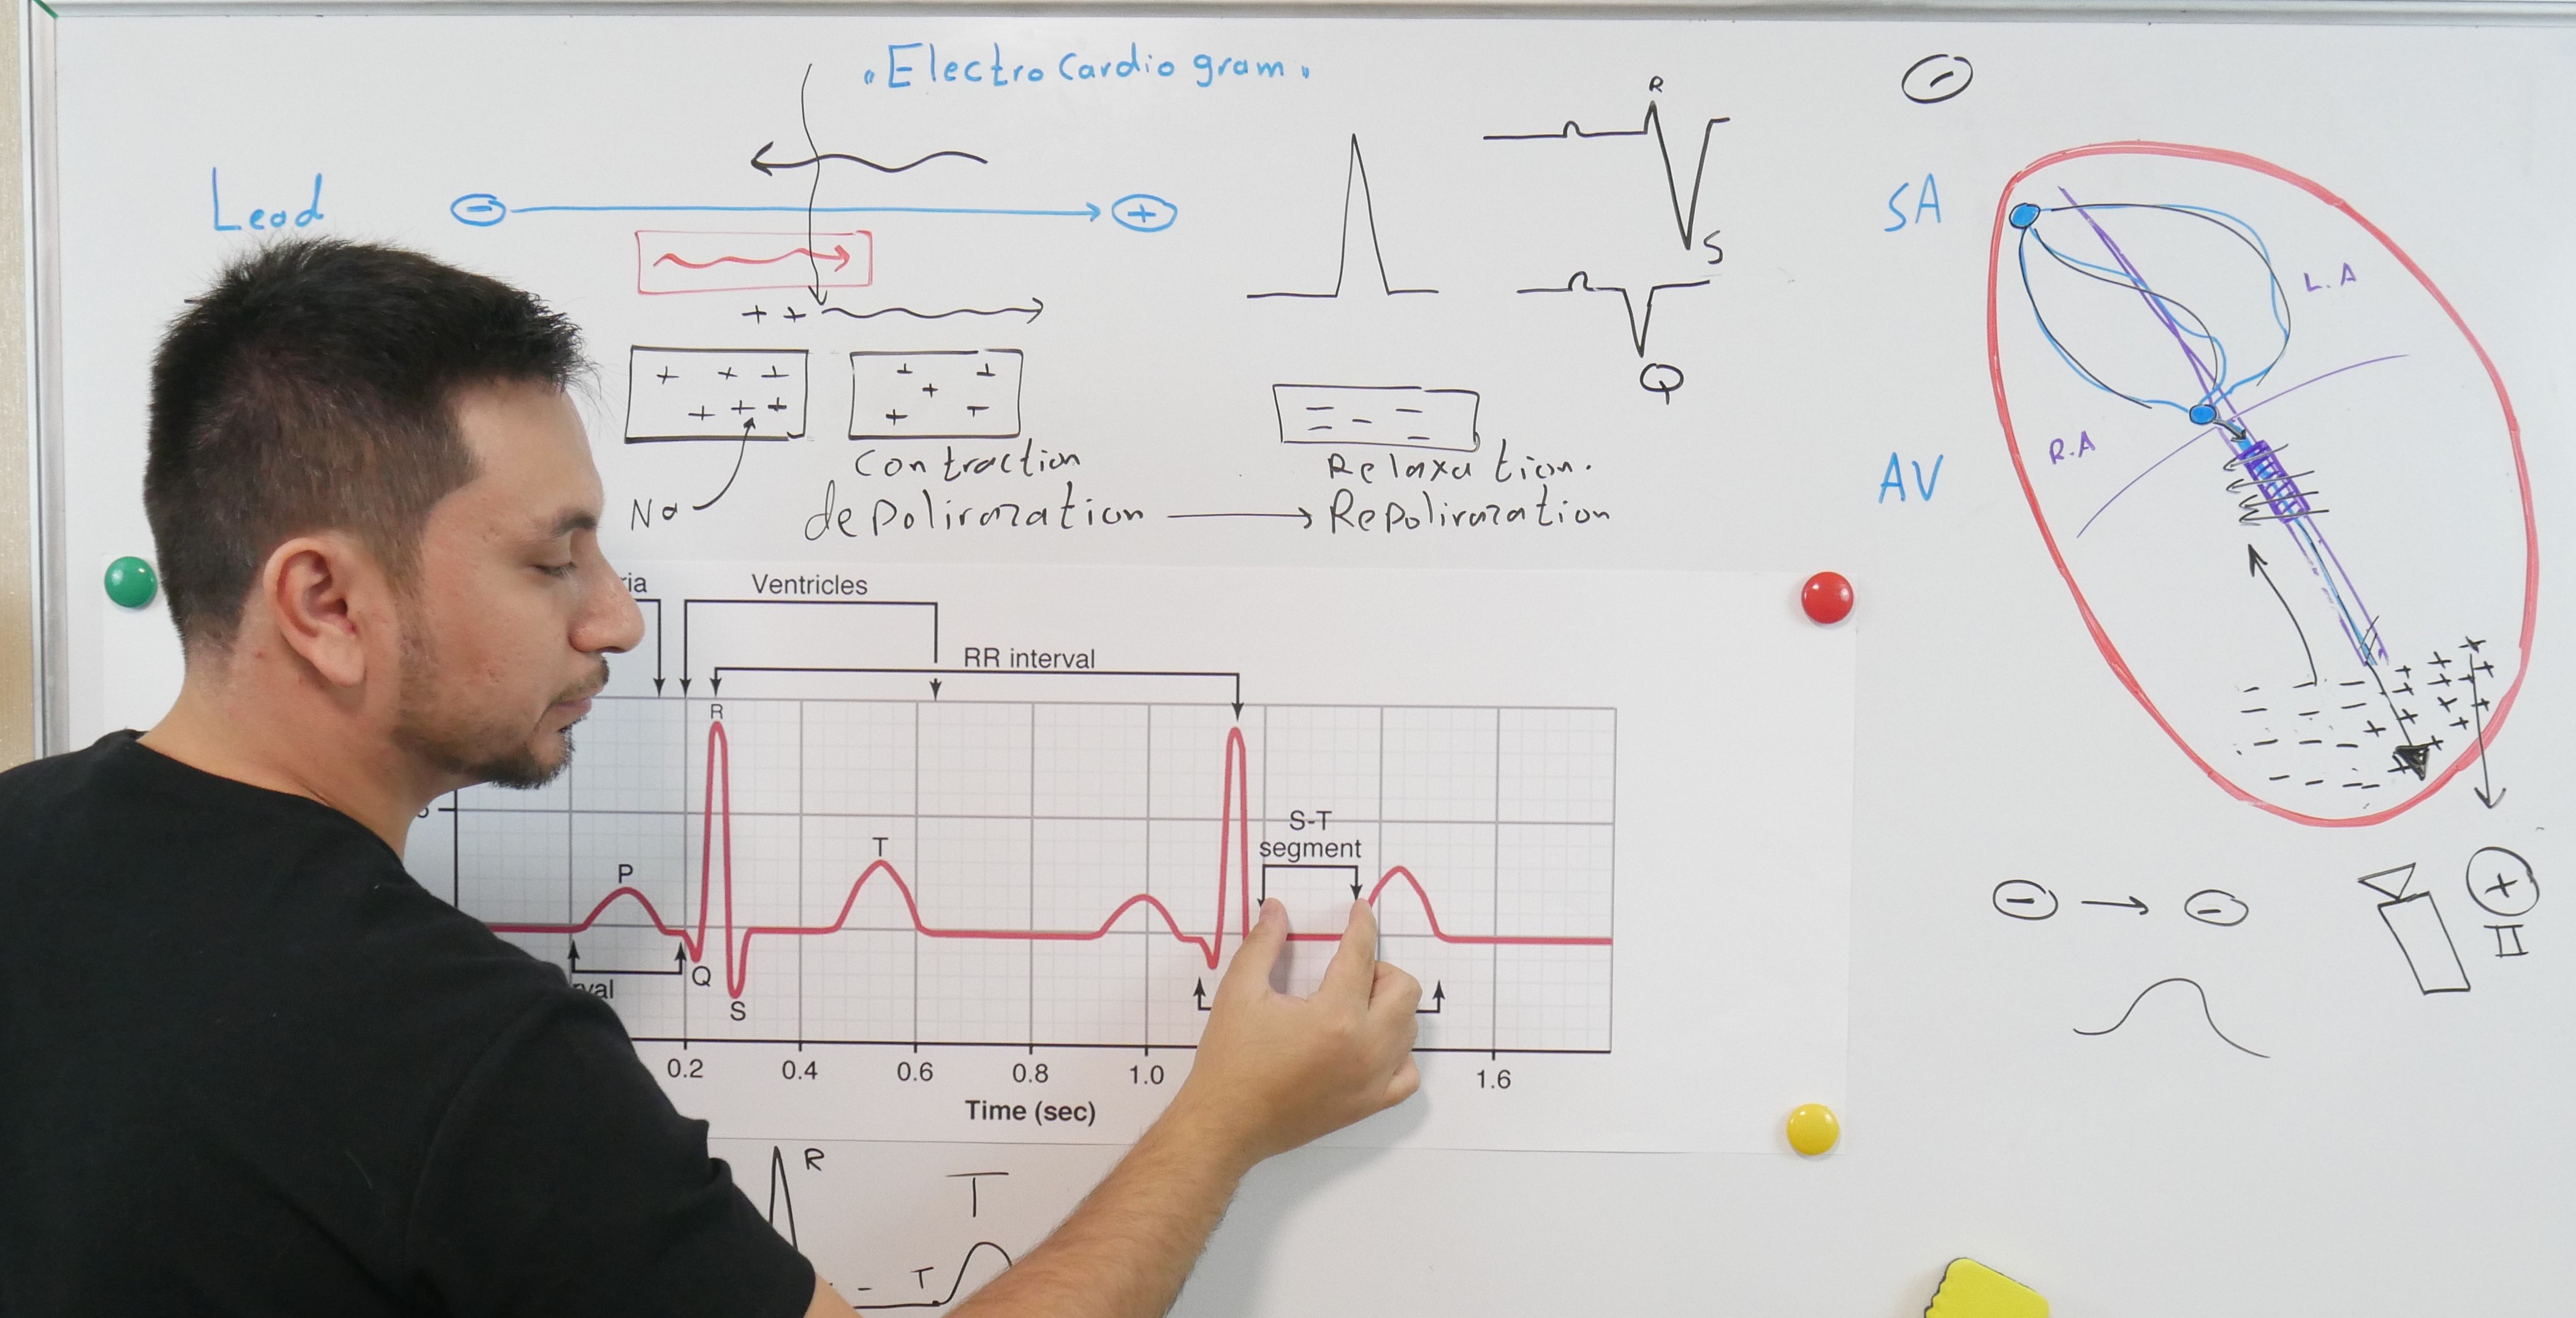 "ElectroCardiogram"
Lead
- +
+ +
Na
Contraction
depolirazation
Relaxation.
Repolirazation
R
S
Q
-
SA
L.A
R.A
AV
- -
+
II
ria
Ventricles
RR interval
R
P
T
S-T
segment
Q
S
rval
0.2 0.4 0.6 0.8 1.0 1.6
Time (sec)
R
T
- T